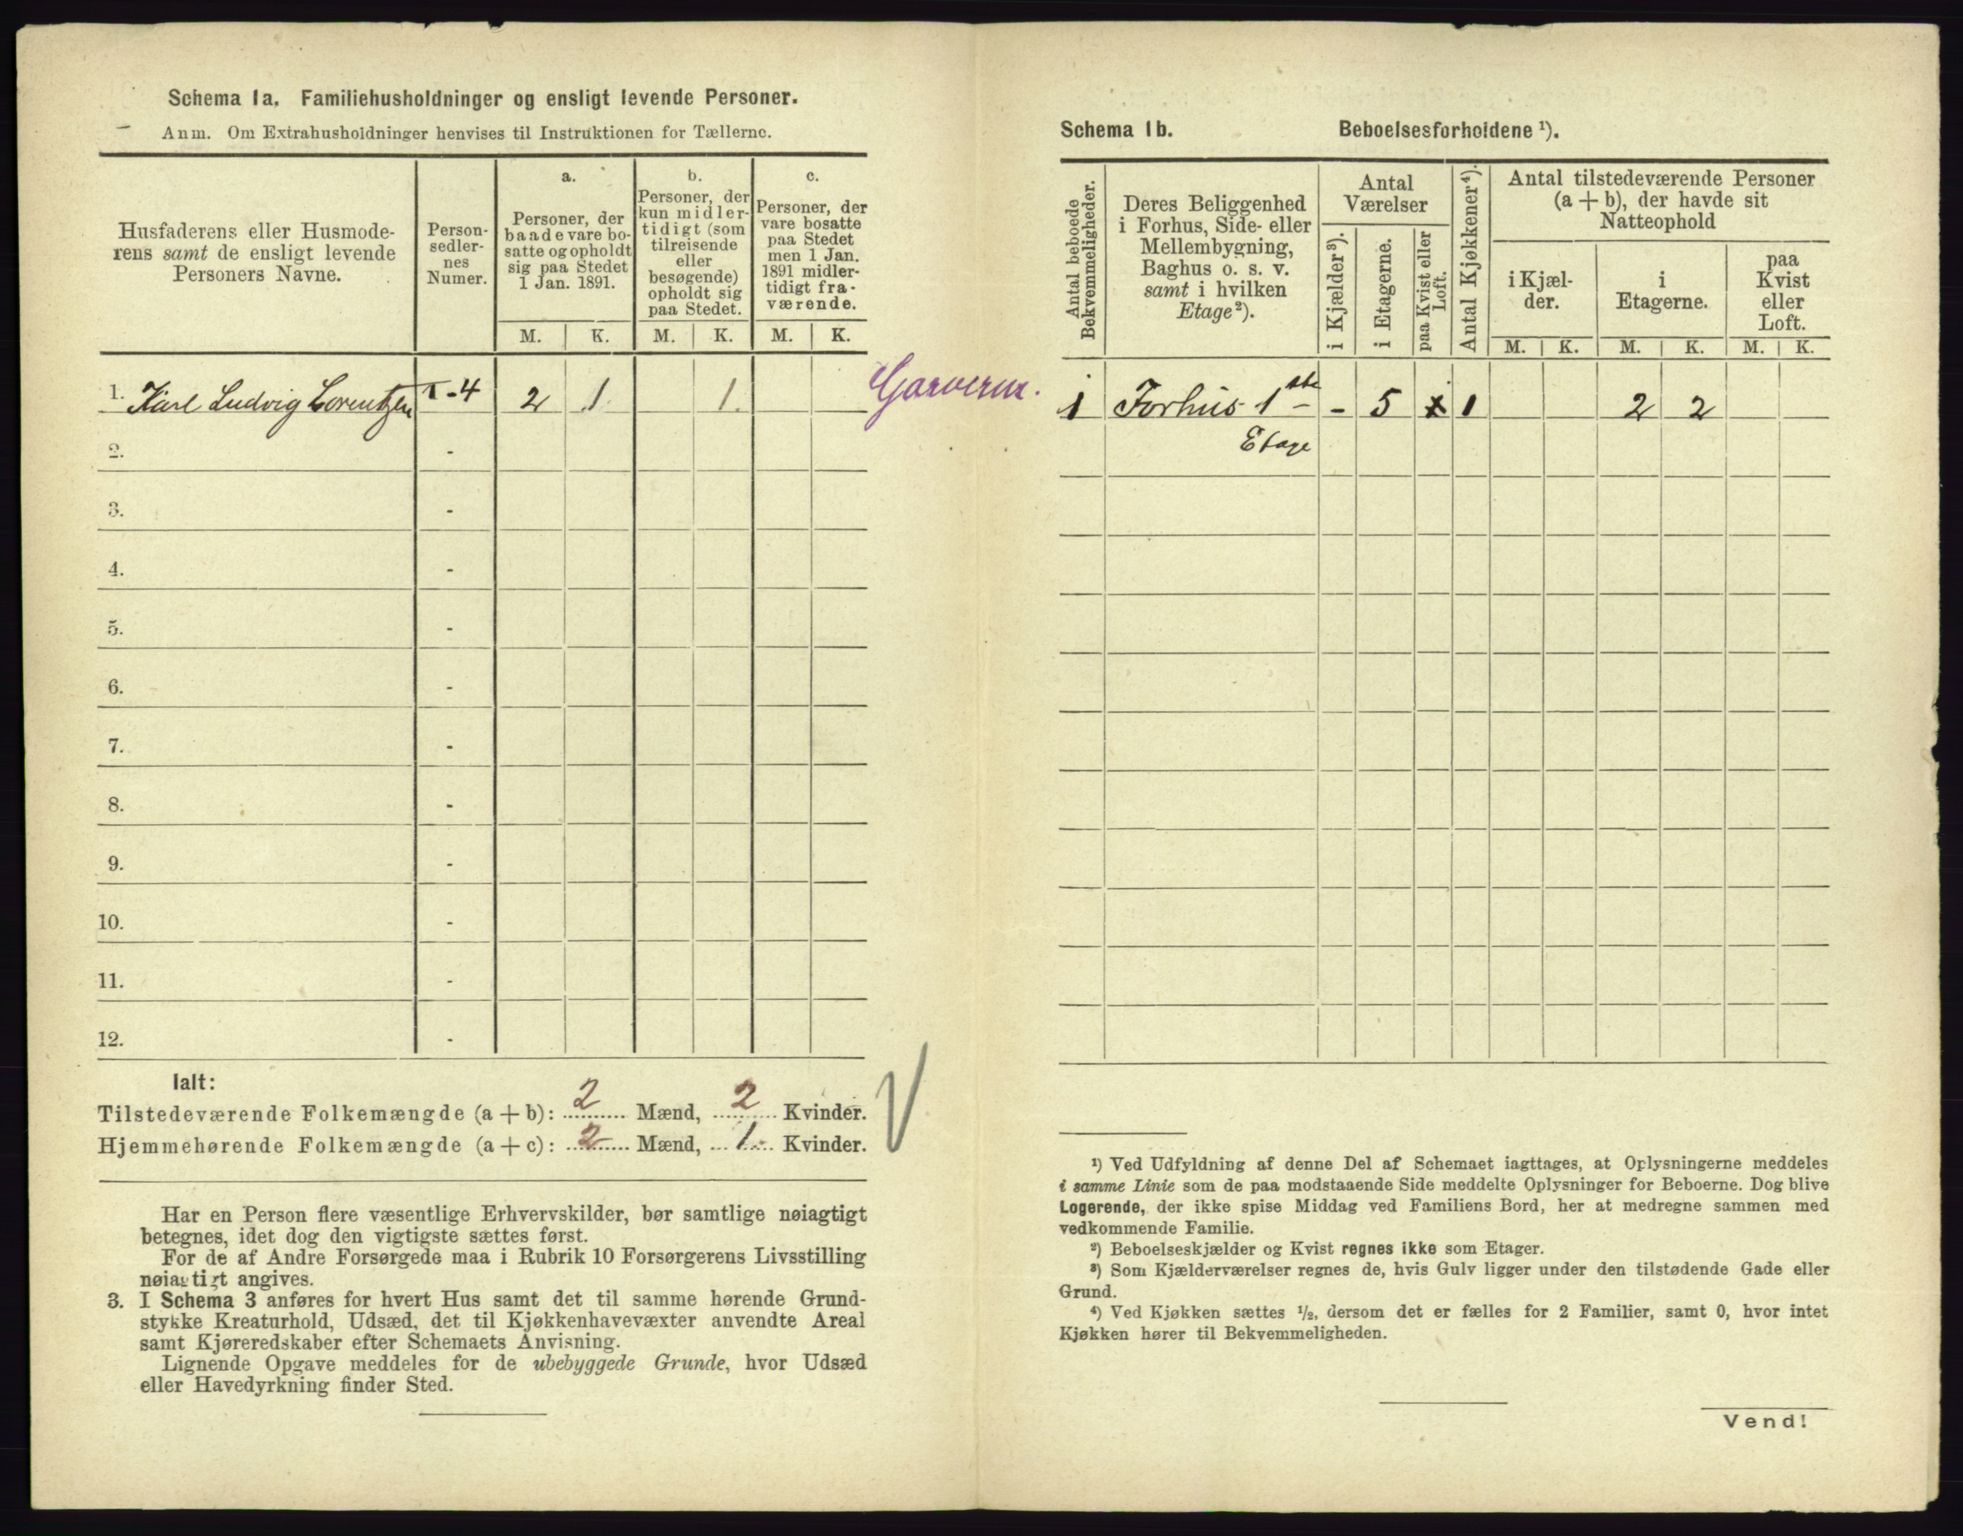 Schema 1a. Familiehusholdninger og ensligt levende Personer.
Anm. Om Extrahusholdninger henvises til Instruktionen for Tællerne.
Husfaderens eller Husmode-
rens samt de ensligt levende
Personers Navne.
Person-
sedler-
nes
Numer.
a.
Personer, der
baade vare bo-
satte og opholdt
sig paa Stedet
1 Jan. 1891.
b.
Personer, der
kun midler-
tidigt (som
tilreisende
eller
besøgende)
opholdt sig
paa Stedet.
c.
Personer, der
vare bosatte
paa Stedet
men 1 Jan.
1891 midler-
tidigt fra-
værende.
M. K. M. K. M. K.
1. Karl Ludvig Lorentzen 1-4 2 1 1
2. -
3. -
4. -
5. -
6. -
7. -
8. -
9. -
10. -
11. -
12. -
Ialt:
Tilstedeværende Folkemængde (a + b): 2 Mænd, 2 Kvinder.
Hjemmehørende Folkemængde (a + c): 2 Mænd, 1 Kvinder.
Har en Person flere væsentlige Erhvervskilder, bør samtlige nøiagtigt
betegnes, idet dog den vigtigste sættes først.
For de af Andre Forsørgede maa i Rubrik 10 Forsørgerens Livsstilling
nøiagtigt angives.
3. I Schema 3 anføres for hvert Hus samt det til samme hørende Grund-
stykke Kreaturhold, Udsæd, det til Kjøkkenhavevæxter anvendte Areal
samt Kjøreredskaber efter Schemaets Anvisning.
Lignende Opgave meddeles for de ubebyggede Grunde, hvor Udsæd
eller Havedyrkning finder Sted.
Schema 1b. Beboelsesforholdene ¹).
Antal beboede
Bekvemmeligheder.
Deres Beliggenhed
i Forhus, Side- eller
Mellembygning,
Baghus o. s. v.
samt i hvilken
Etage²).
Antal
Værelser
i Kjælder³).
i Etagerne.
paa Kvist eller
Loft.
Antal Kjøkkener⁴).
Antal tilstedeværende Personer
(a + b), der havde sit
Natteophold
i Kjæl-
der.
i
Etagerne.
paa
Kvist
eller
Loft.
M. K. M. K. M. K.
1 Forhus 1ste - 5 1 2 2
Etage
¹) Ved Udfyldning af denne Del af Schemaet iagttages, at Oplysningerne meddeles
i samme Linie som de paa modstaaende Side meddelte Oplysninger for Beboerne. Dog blive
Logerende, der ikke spise Middag ved Familiens Bord, her at medregne sammen med
vedkommende Familie.
²) Beboelseskjælder og Kvist regnes ikke som Etager.
³) Som Kjælderværelser regnes de, hvis Gulv ligger under den tilstødende Gade eller
Grund.
⁴) Ved Kjøkken sættes ½, dersom det er fælles for 2 Familier, samt 0, hvor intet
Kjøkken hører til Bekvemmeligheden.
Vend!